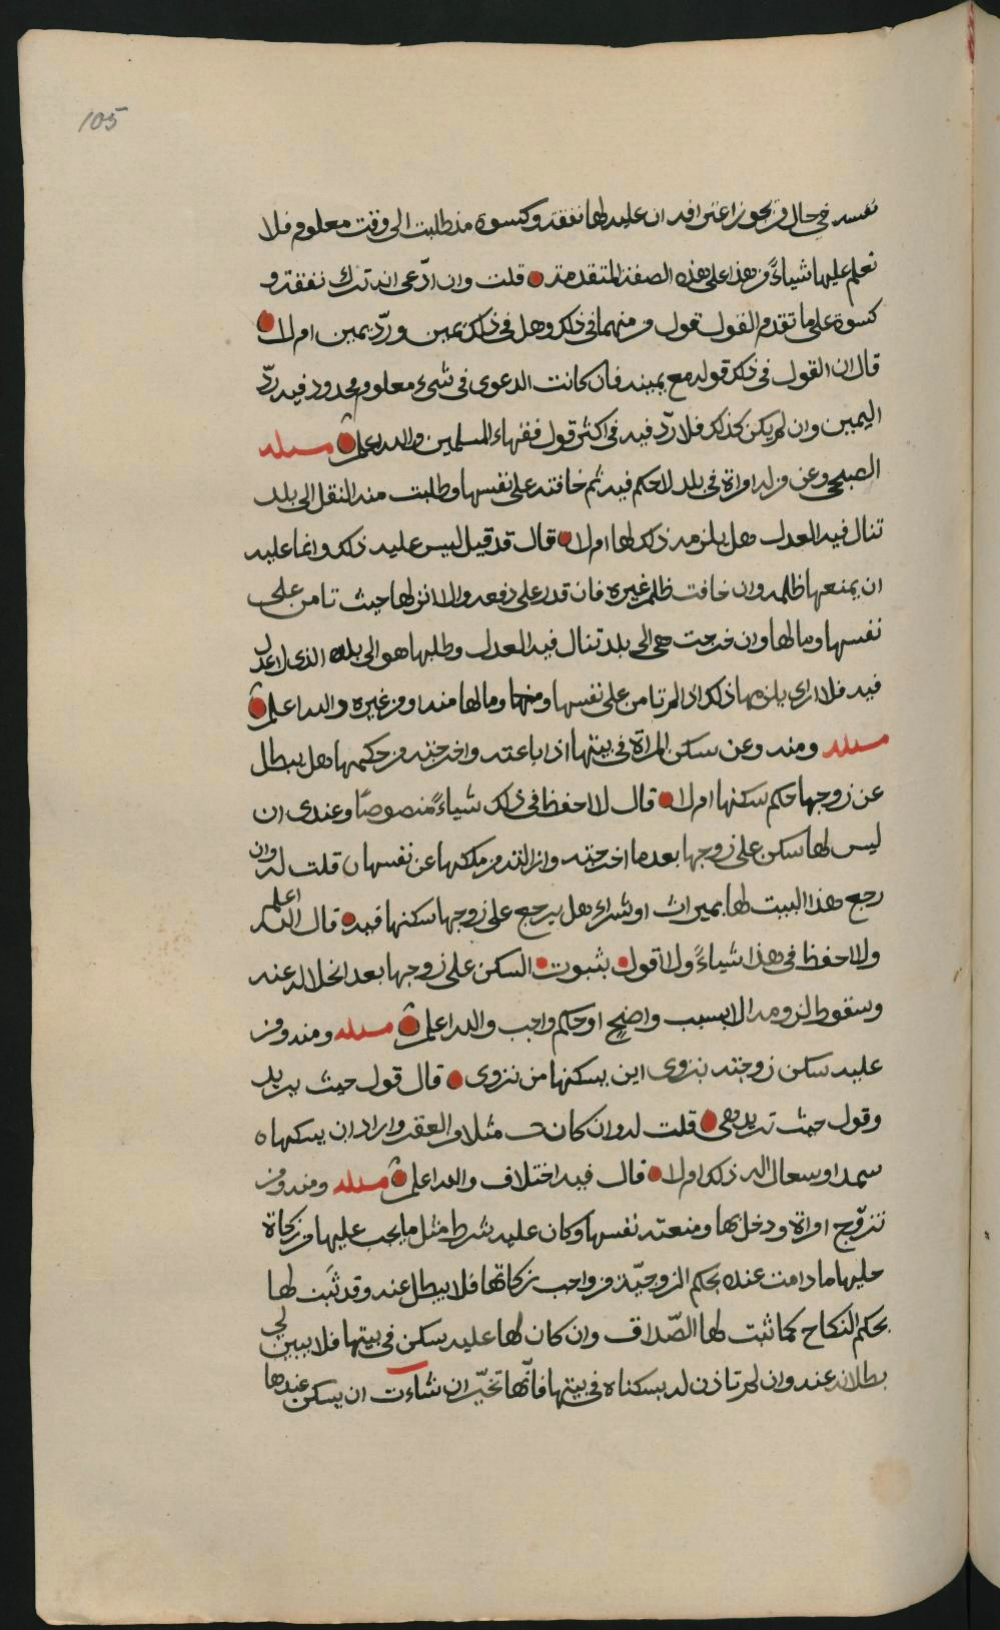 105
نفسه في حال من يجوز اعترافه ان عليه لها نفقه وكسوة منذ طلبت الى وقت معلوم فلا
نعلم عليها شياءً من هذا على هذه الصفة المتقدمة قلت وان ادّعى انه ترك نفقة و
كسوة على ما تقدم القول قول من منهما في ذلك وهل في ذلك يمين وردّ يمين ام لا
قال ان القول في ذلك قوله مع يمينه فان كانت الدعوى في شىء معلوم محدود فيه ردّ
اليمين وان لم يكن كذلك فلا ردّ فيه في اكثر قول فقهاء المسلمين والله اعلم مسله
الصبحي وعن من له امراة في بلد لا حكم فيه ثم خافته على نفسها وطلبت منه النقل الى بلد
تنال فيه العدل هل يلزمه ذلك لها ام لا قال قد قيل ليس عليه ذلك وانما عليه
ان يمنعها ظلمه وان خافت ظلم غيره فان قدر على دفعه والا انزلها حيث تامن على
نفسها ومالها وان خرجت هي الى بلد تنال فيه العدل وطلبها هو الى بلده الذى لا عدل
فيه فلا ارى يلزمها ذلك اذا لم تامن على نفسها ومالها منه او من غيره والله اعلم
مسله ومنه وعن سكن المراة في بيتها اذا باعته واخرجته من حكمها هل يبطل
عن زوجها حكم سكنها ام لا قال لا احفظ في ذلك شياءً منصوصًا وعندى ان
ليس لها سكن على زوجها بعدما اخرجته وازالته من ملكها عن نفسها قلت له وان
رجع هذا البيت لها بميراث او شراء هل يرجع على زوجها سكنها فيه قال الله اعلم
ولا احفظ في هذا شياءً ولا اقول بثبوت السكن على زوجها بعد انحلاله عنه
وسقوط لزومه الا بسبب واضح او حكم واجب والله اعلم مسله ومنه ومن
عليه سكن زوجته بنزوى اين يسكنها من نزوى قال قول حيث يريد
وقول حيث تريد هي قلت له وان كانت مثلا من العقر واراد ان يسكنها
سمد او سعال اله ذلك ام لا قال فيه اختلاف والله اعلم مسله ومنه ومن
تزوّج امراة ودخل بها ومنعته نفسها وكان عليه شرط مثل ما يجب عليها من زكاة
حليها ما دامت عنده بحكم الزوجيّة من واجب زكاتها فلا يبطل عنه وقد ثبت لها
بحكم النكاح كما ثبت لها الصّداق وان كان لها عليه سكن في بيتها فلا يبين لي
بطلانه عنه وان لم تاذن له بسكناه في بيتها فانّها تخيّر ان شاءت ان يسكن عندها